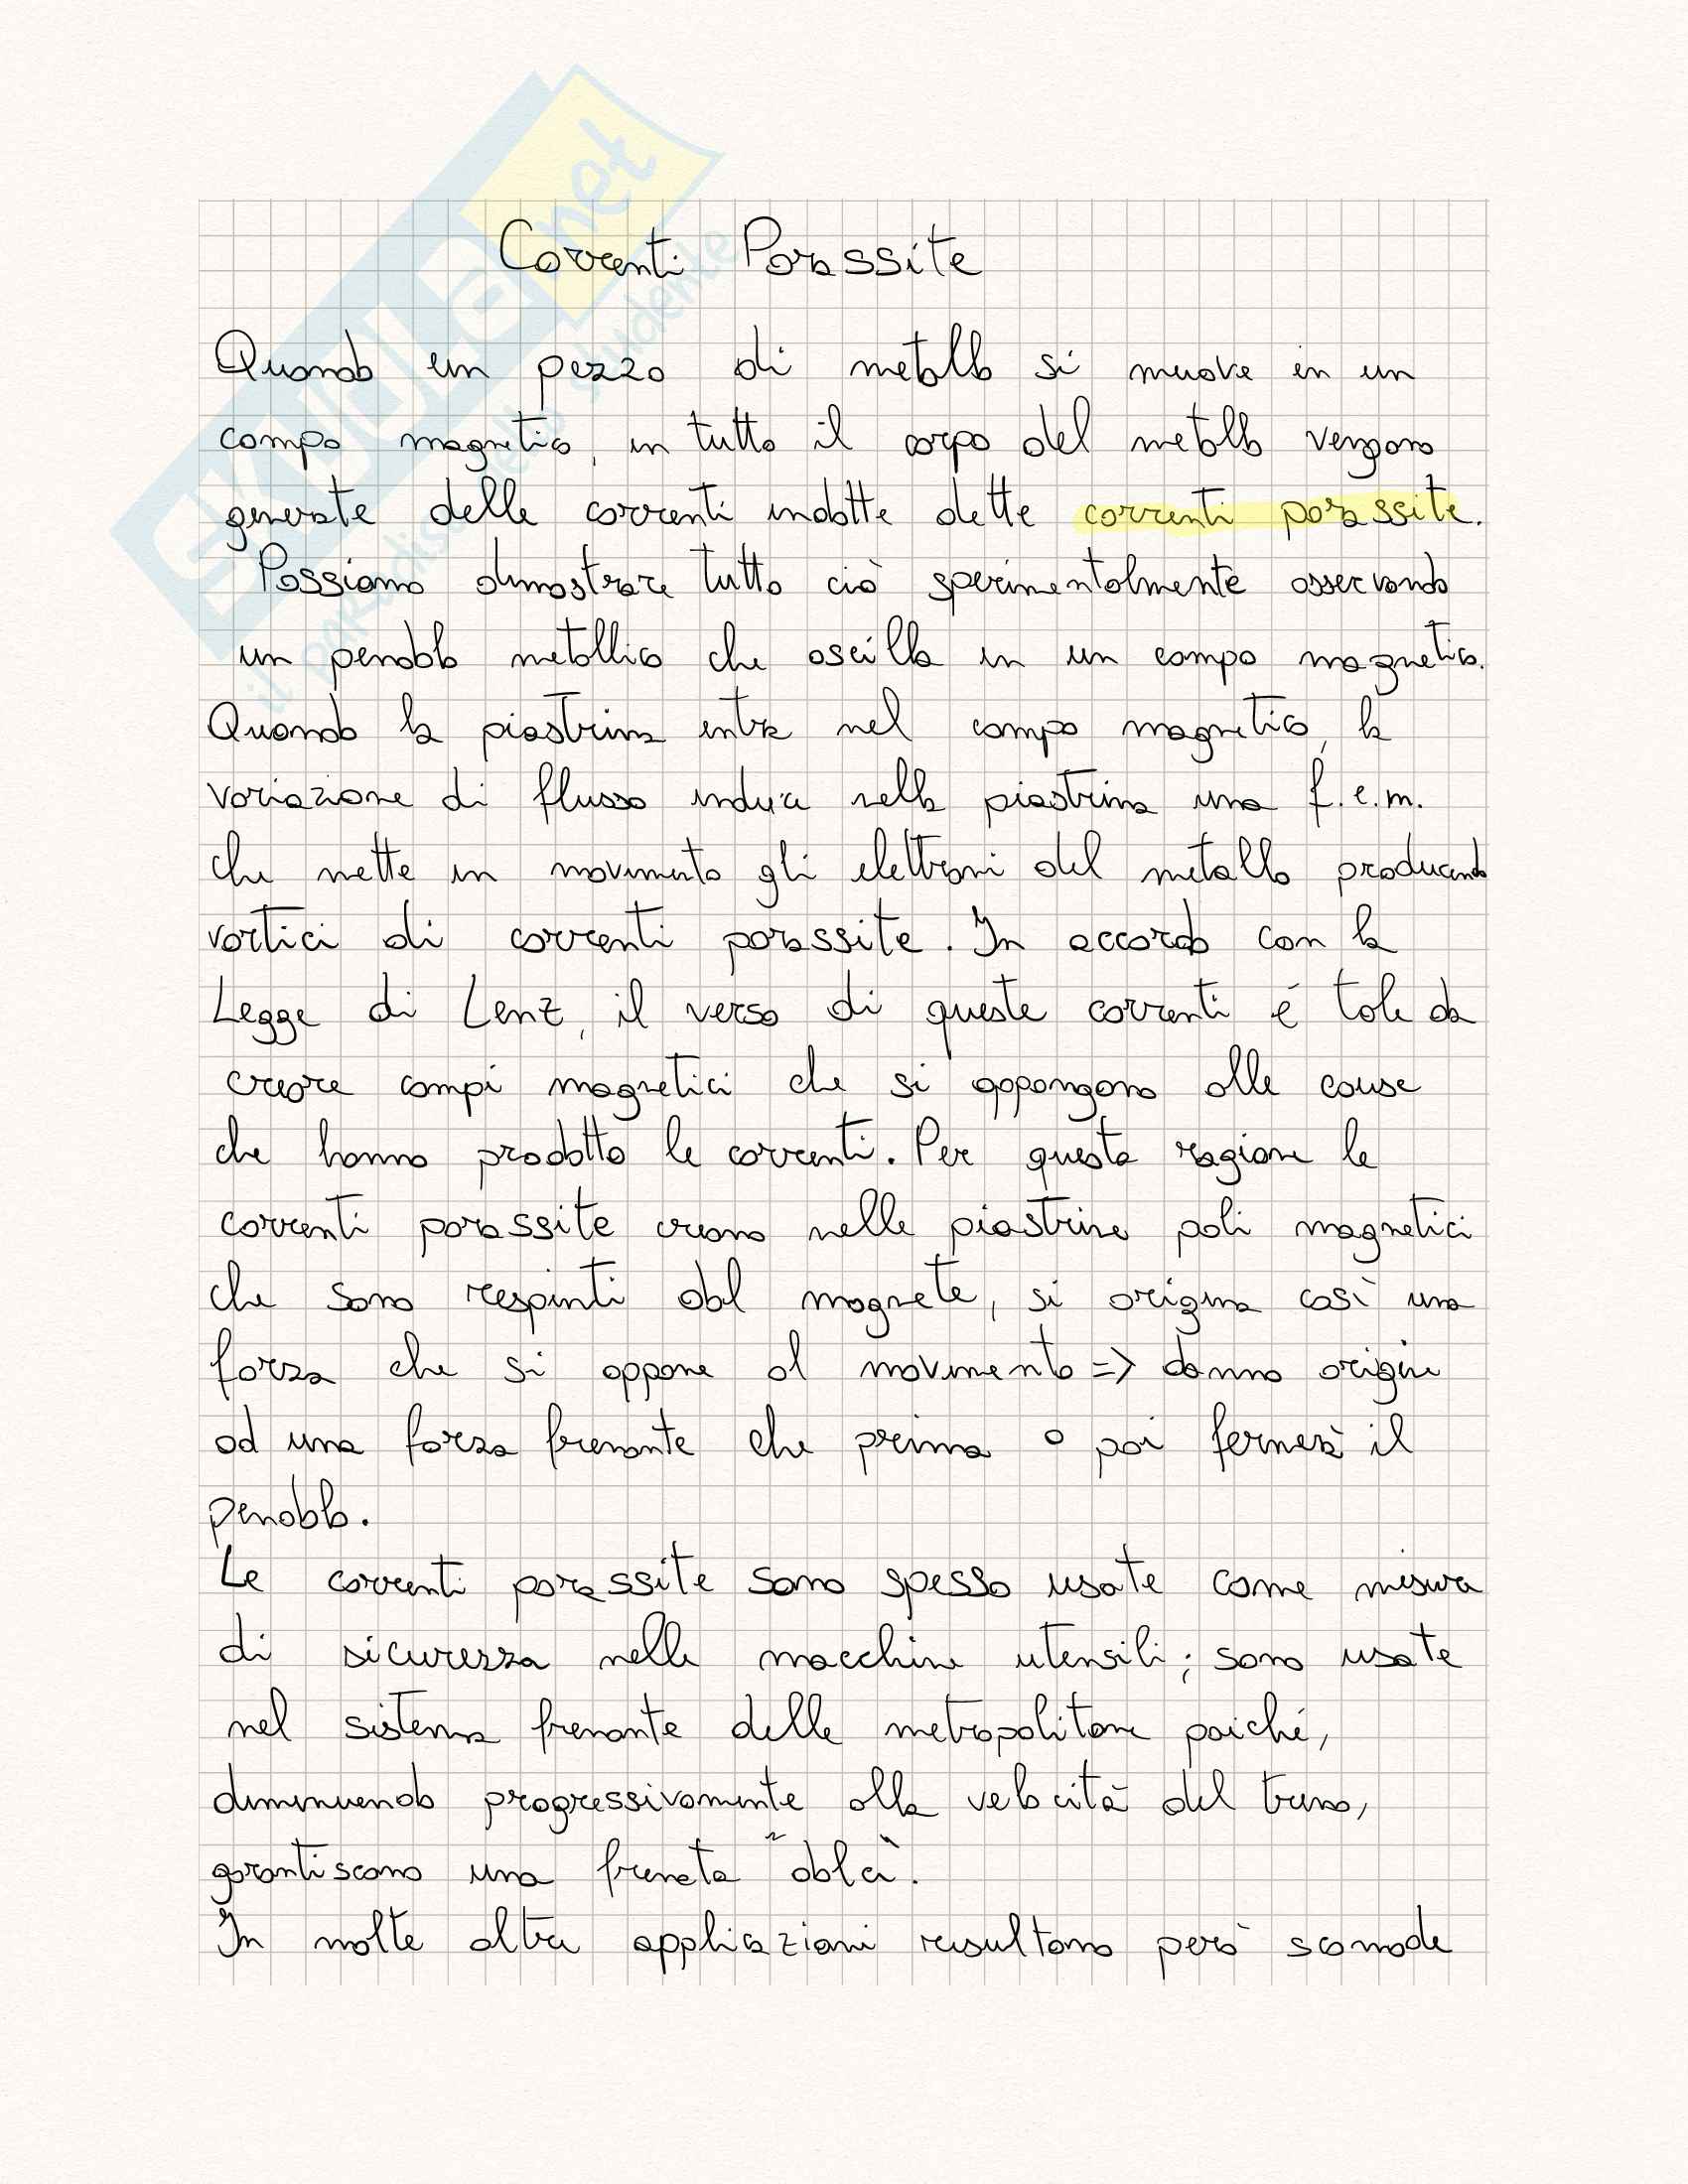 Correnti Parassite
Quando un pezzo di metallo si muove in un
campo magnetico, in tutto il corpo del metallo vengono
generate delle correnti indotte dette correnti parassite.
Possiamo dimostrare tutto ciò sperimentalmente osservando
un pendolo metallico che oscilla in un campo magnetico.
Quando la piastrina entra nel campo magnetico, la
variazione di flusso induce nella piastrina una f.e.m.
che mette in movimento gli elettroni del metallo producendo
vortici di correnti parassite. In accordo con la
Legge di Lenz, il verso di queste correnti é tale da
creare campi magnetici che si oppongono alle cause
che hanno prodotto le correnti. Per questa ragione le
correnti parassite creano nelle piastrine poli magnetici
che sono respinti dal magnete, si origina così una
forza che si oppone al movimento => danno origine
ad una forza frenante che prima o poi fermerà il
pendolo.
Le correnti parassite sono spesso usate come misura
di sicurezza nelle macchine utensili; sono usate
nel sistema frenante delle metropolitane poiché,
diminuendo progressivamente alla velocità del treno,
garantiscono una frenata "dolce".
In molte altre applicazioni risultano però scomode
SKUOLA.net
il paradiso dello studente